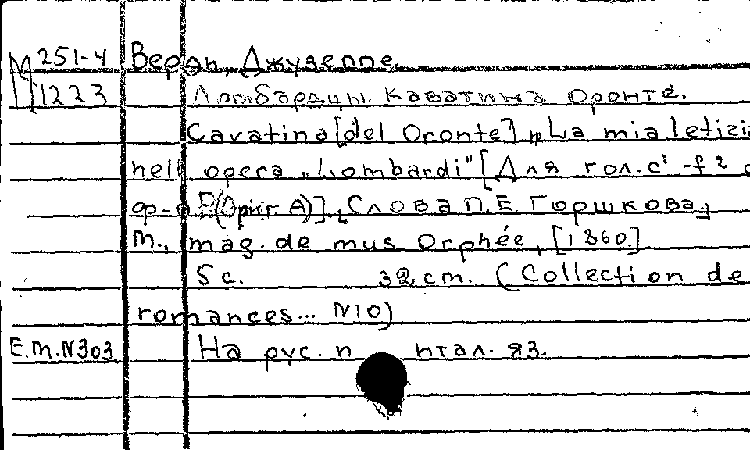 М 251-4 Верди, Джузеппе.
1223 Ломбардцы. Каватина Оронте.
Cavatina [del Oronte] „La mia letizi
nell opera „Lombardi" [Для гол. c¹-f² с
ф-п. (Ориг. A)]. Слова П. Е. Горшкова.
M., mag. de mus Orphée, [1860]
5 c. 32 cm. (Collection de
romances... N10)
E.M.N303 На рус. и итал. яз.